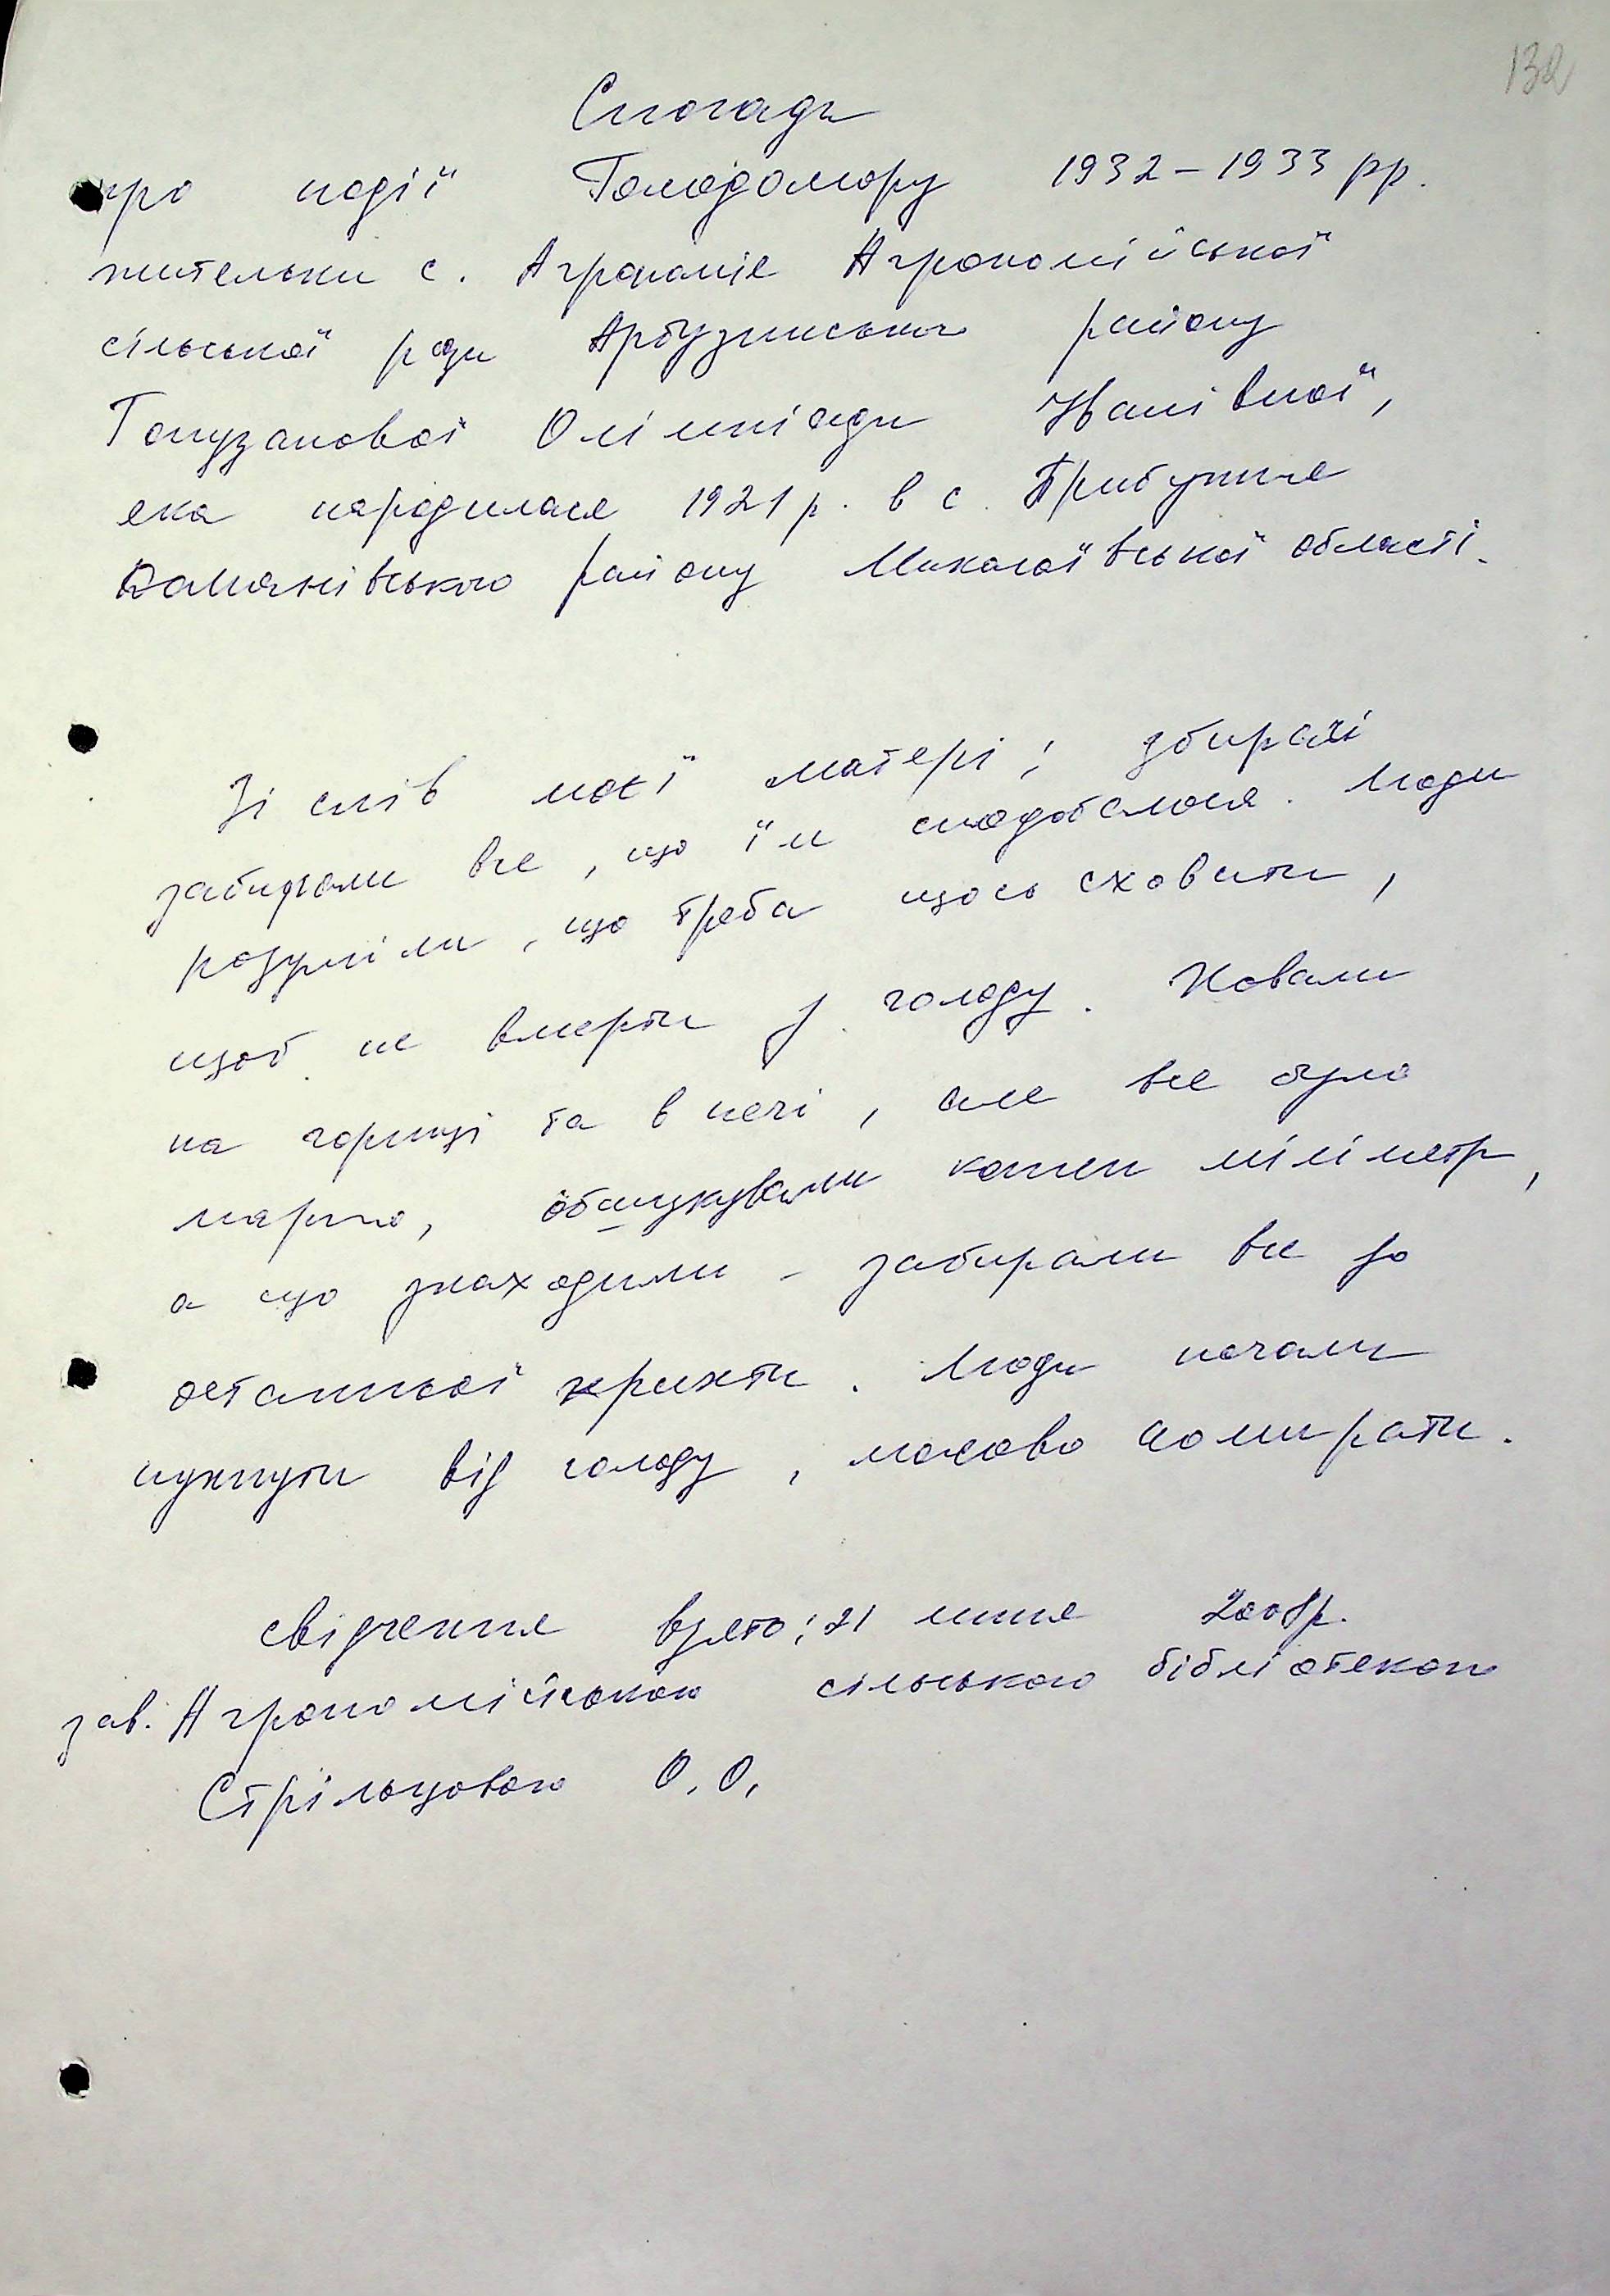 132
Спогади
про події Голодомору 1932-1933 рр.
жительки с. Агрономія Агрономійської
сільської ради Арбузинського району
Топузанової Олімпіади Іванівної,
яка народилася 1921 р. в с. Прибужжя
Доманівського району Миколаївської області.
Зі слів моєї матері; збирачі
забирали все, що їм сподобалося. Люди
розуміли, що треба щось сховати,
щоб не вмерти з голоду. Ховали
на горищі та в печі, але все було
марно, обшукували кожен міліметр,
а що знаходили - забирали все до
останньої крихти. Люди почали
пухнути від голоду, масово помирати.
свідчення взято; 21 липня 2008р.
зав. Агрономійською сільською бібліотекою
Стрільцовою О.О.